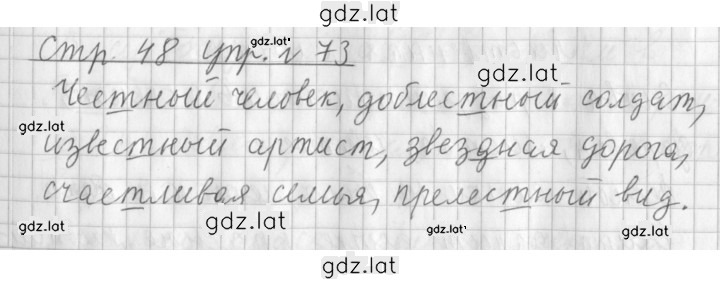 gdz.lat
Стр. 48 упр. 73
gdz.lat'
gdz.lat
Честный человек, доблестный солдат,
gdz.lat
известный артист, звездная дорога,
счастливая семья, прелестный вид.
gdz.lat gdz.lat gdz.lat' gdz.lat
gdz.lat